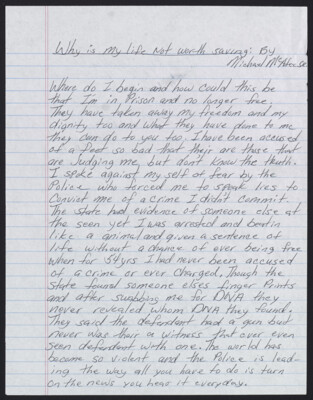 Why is my life Not worth saving: By
Michael
Where do I begin and how could this be
that I'm in, Prison and no longer free,
They have taken away my freedom and my
dignity too and what they have done to me
they can do to you too, I have been accused
of a feat so bad that their are those that
are Judging me, but dont know the truth.
I spoke against my self of fear by the
Police who forced me to speak lies to
Convict me of a crime I didn't commit.
The State had evidence of someone else at
the seen yet I was arrested and beatin
like a animal and given a sentence of
life without a chance of ever being free
when for 34yrs I had never been accused
of a crime or ever charged, Though the
state found someone elses finger Prints
and after swabbing me for DNA they
never revealed whom DNA they found.
They said the defendant had a gun but
never was their a witness that ever even
seen defendant with one. The world has
become so violent and the Police is lead-
ing the way all you have to do is turn
on the news you hear it everyday.